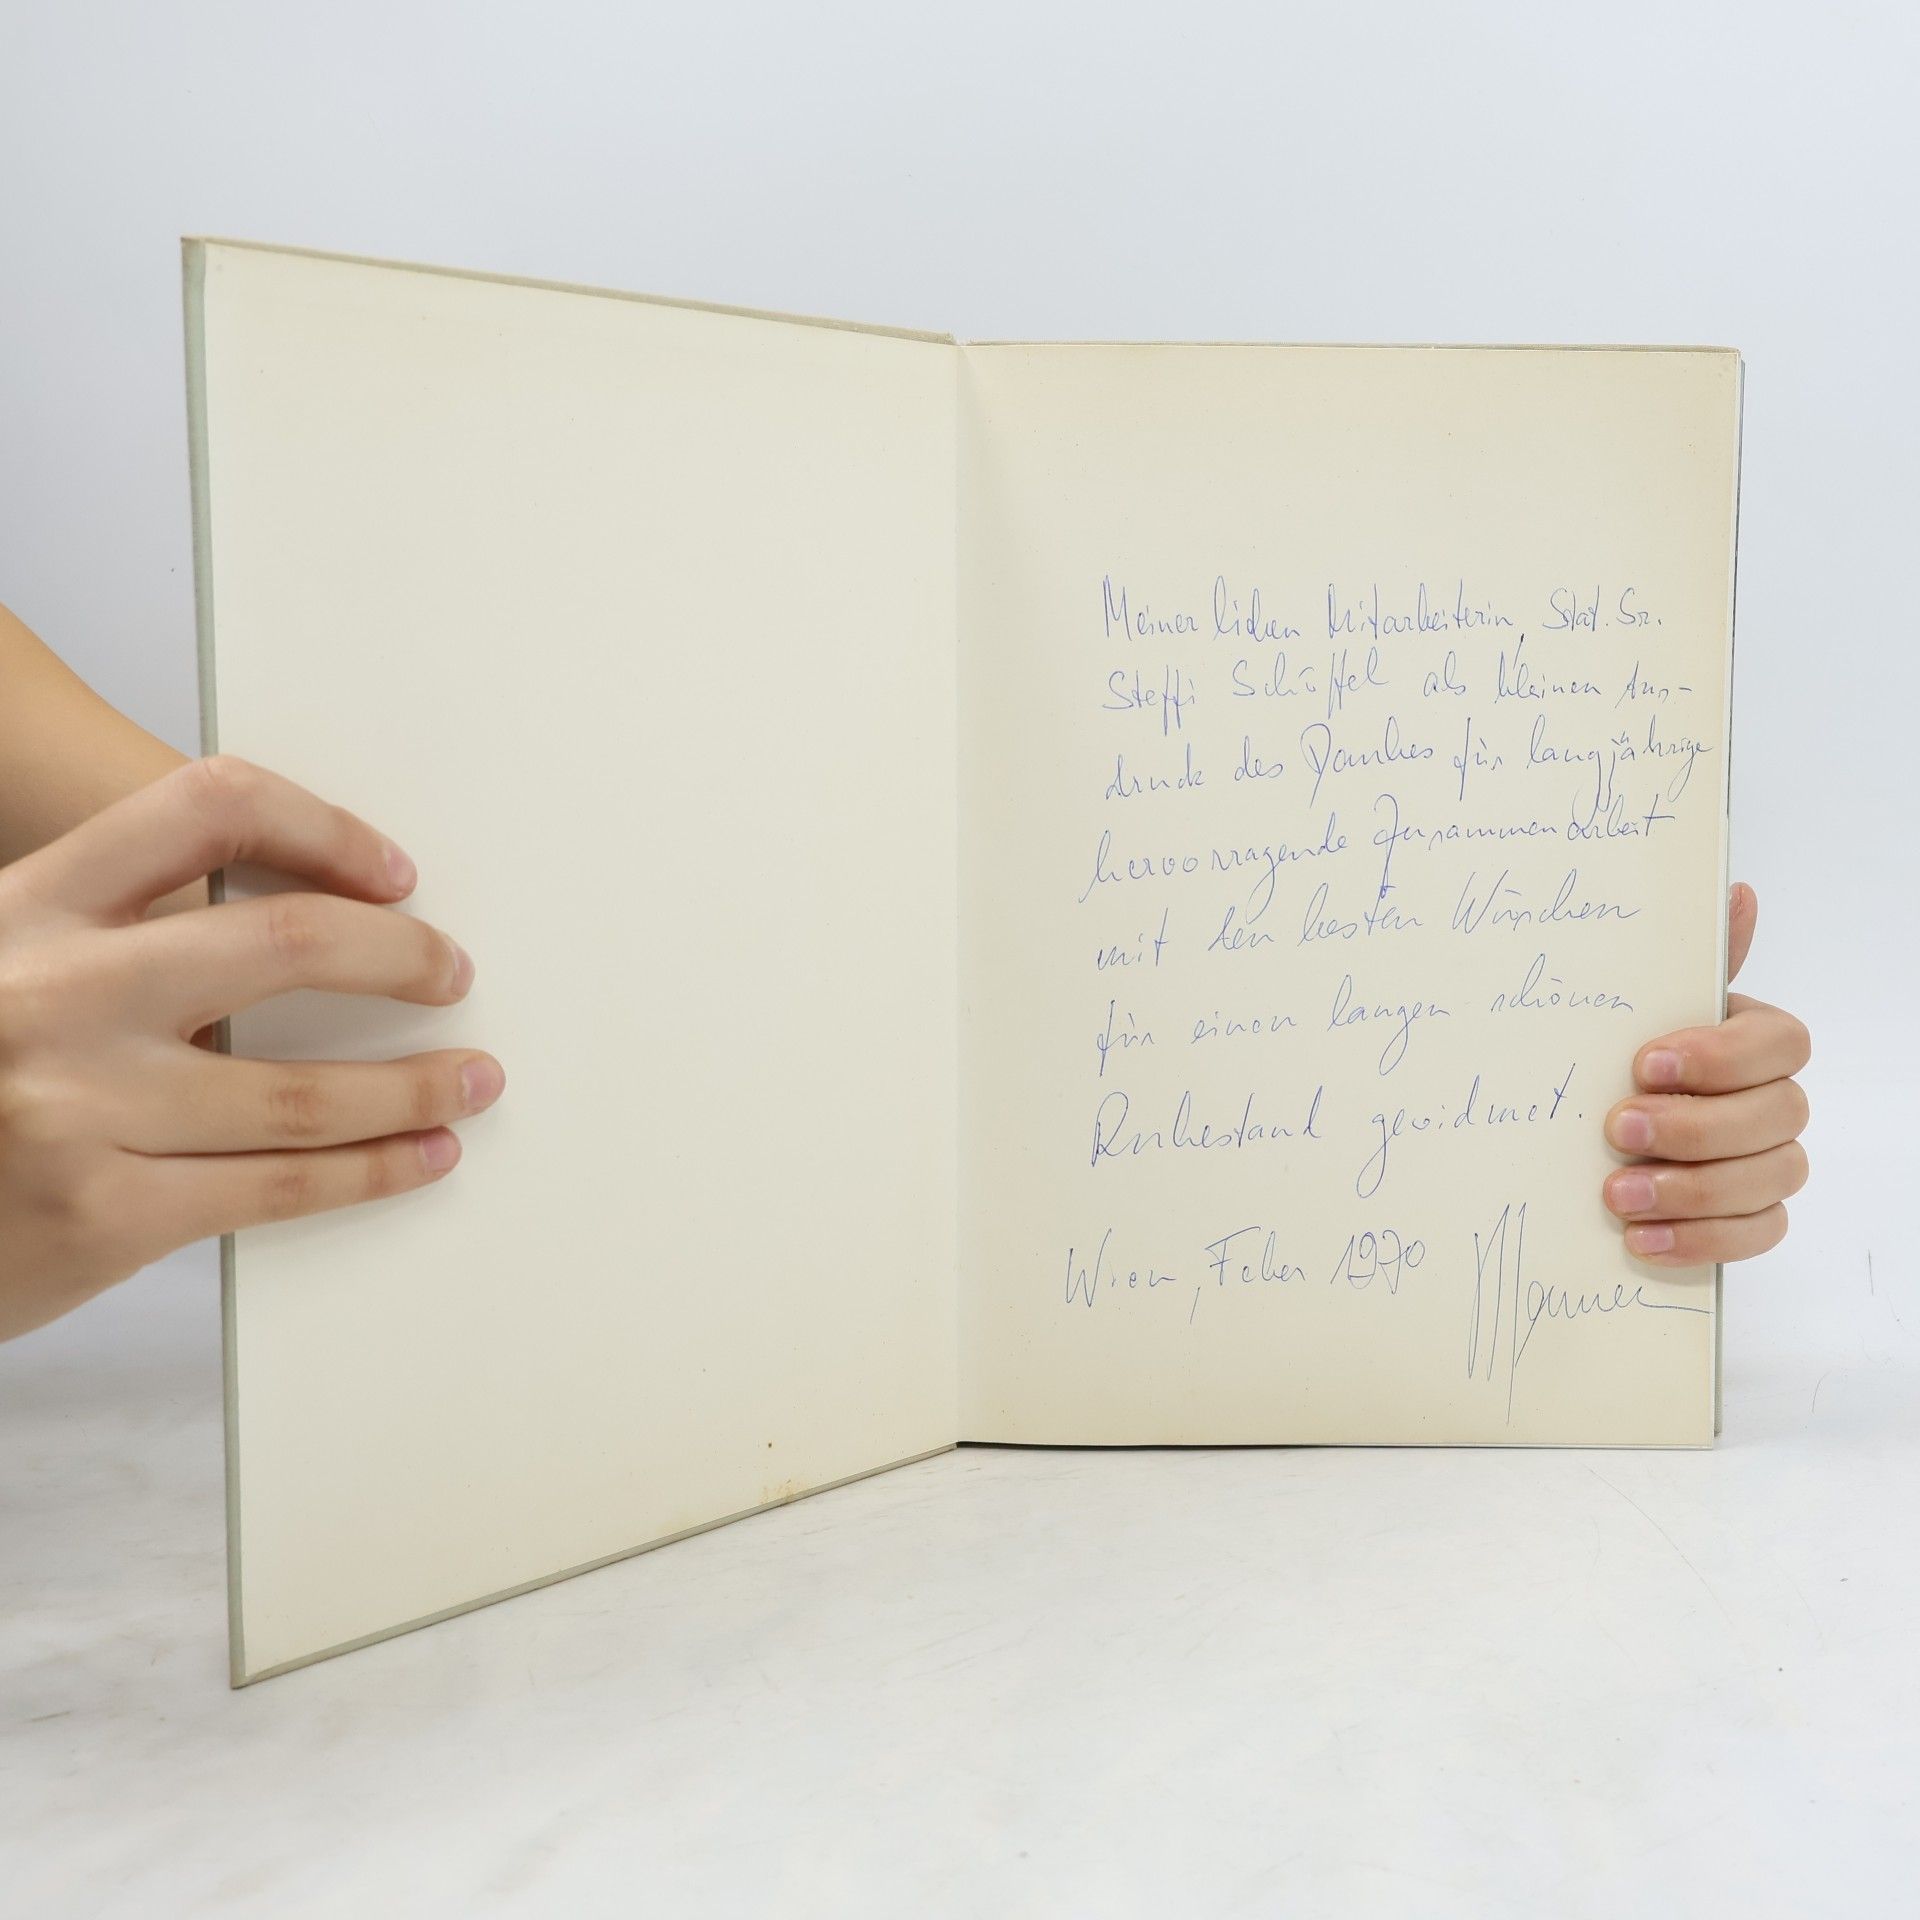 Meiner lieben Mitarbeiterin, Stat. Sr.
Steffi Schöffel als kleinen Aus-
druck des Dankes für langjährige
hervorragende Zusammenarbeit
mit den besten Wünschen
für einen langen schönen
Ruhestand gewidmet.
Wien, Feber 1970